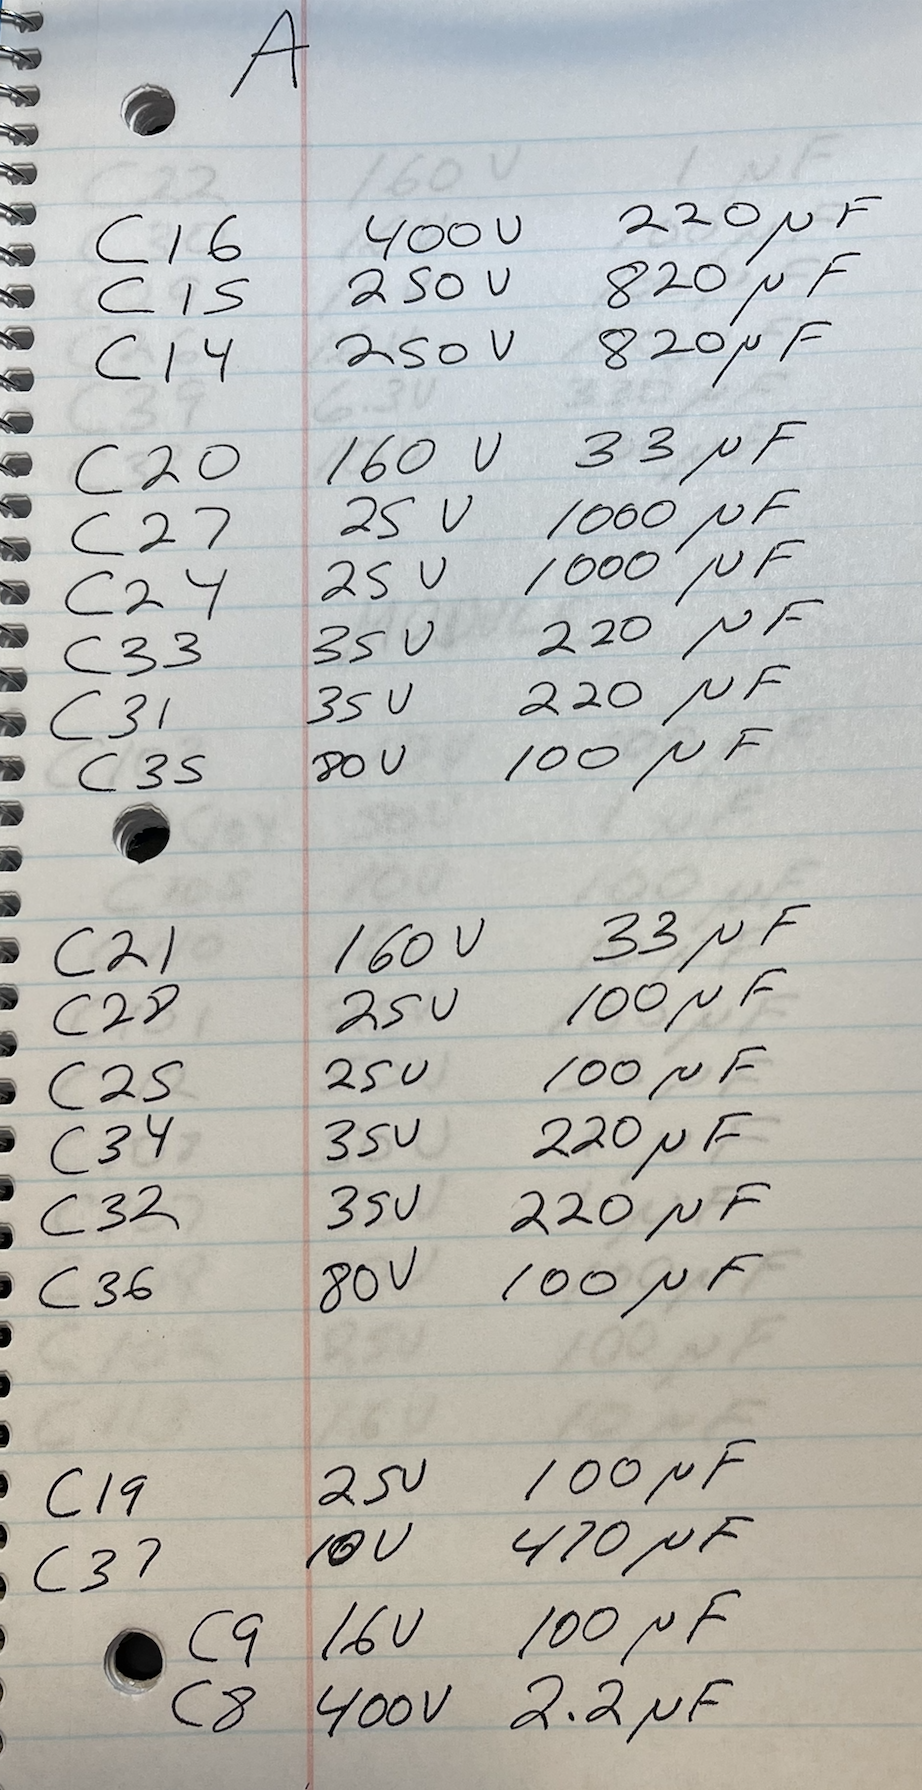 A
C16 400V 220µF
C15 250V 820µF
C14 250V 820µF
C20 160V 33µF
C27 25V 1000µF
C24 25V 1000µF
C33 35V 220µF
C31 35V 220µF
C35 80V 100µF
C21 160V 33µF
C28 25V 100µF
C25 25V 100µF
C34 35V 220µF
C32 35V 220µF
C36 80V 100µF
C19 25V 100µF
C37 10V 470µF
C9 16V 100µF
C8 400V 2.2µF